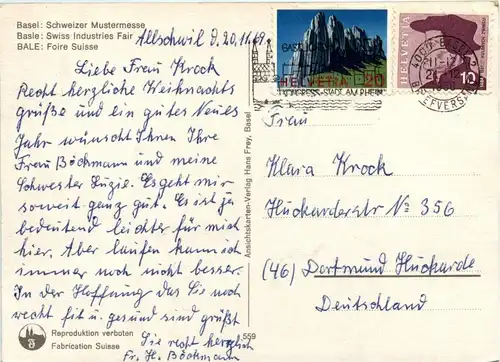 Basel: Schweizer Mustermesse
Basle: Swiss Industries Fair
BALE: Foire Suisse
Allschwil d. 20.11.69.
Liebe Frau Krock
Recht herzliche Weihnachts
grüße und ein gutes Neues
Jahr wünscht Ihnen Ihre
Frau Böckmann und meine
Schwester Luzie. Es geht mir
soweit ganz gut. Es ist ja
bedeutend leichter für mich
hier. Aber laufen kann ich
immer noch nicht besser.
In der Hoffnung das Sie noch
recht fit u. gesund sind grüßt
Sie recht herzlich
Fr. H. Böckmann
Reproduktion verboten
Fabrication Suisse
559
Ansichtskarten-Verlag Hans Frey, Basel
HELVETIA 20
KONGRESS-STADT AM RHEIN
HELVETIA
10
4000 BASEL
BRIEFVERSAND
Frau
Klara Krock
Huckarderstr No 356
(46) Dortmund Huckarde
Deutschland